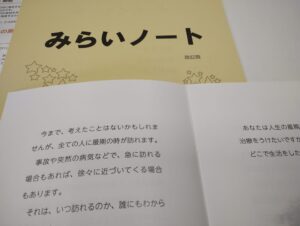 みらいノート
改訂版
今まで、考えたことはないかもしれま
せんが、全ての人に最期の時が訪れます。
事故や突然の病気などで、急に訪れる
場合もあれば、徐々に近づいてくる場合
もあります。
それは、いつ訪れるのか、誰にもわから
あなたは人生の最期
治療をうけたいですか
どこで生活をした